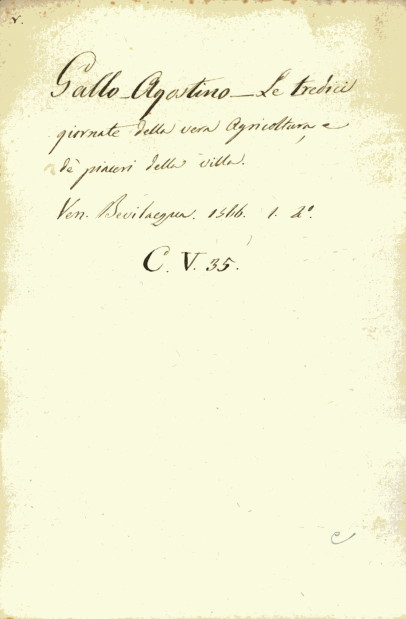 Gallo Agostino – Le tredici
giornate della vera Agricoltura, e
dè piaceri della villa.
Ven. Bevilacqua. 1566. 1. 4°.
C. V. 35.